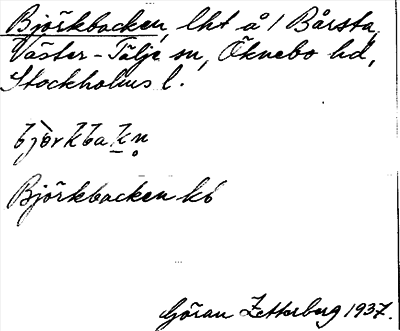 Björkbacken, lht å 1 Bårsta,
Väster-Tälje sn, Öknebo hd,
Stockholms l.
bjò̈rkbakn̥
Björkbacken kb
Göran Zetterberg 1937.